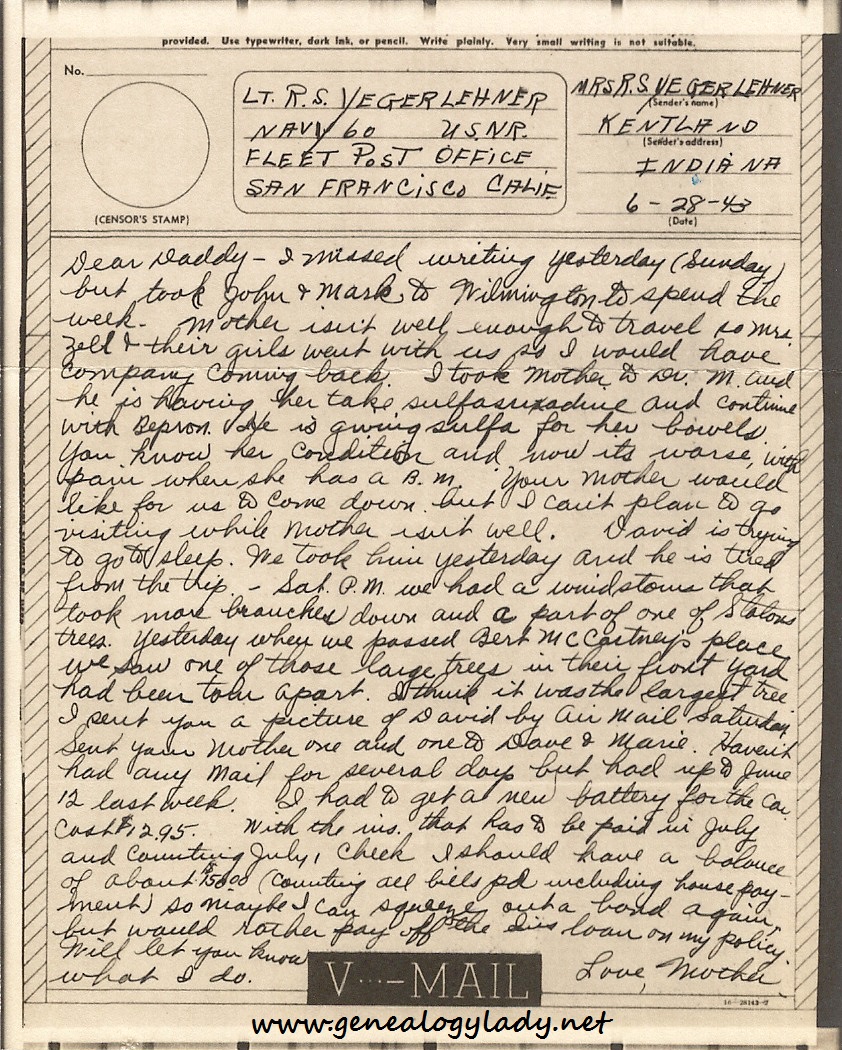 provided. Use typewriter, dark ink, or pencil. Write plainly. Very small writing is not suitable.
No.
(CENSOR'S STAMP)
LT. R.S. YEGERLEHNER
NAVY 60 USNR.
FLEET POST OFFICE
SAN FRANCISCO CALIF.
MRS R.S. YEGERLEHNER
(Sender's name)
KENTLAND
(Sender's address)
INDIANA
6-28-43
(Date)
Dear Daddy - I missed writing yesterday (Sunday)
but took John & Mark to Wilmington to spend the
week. Mother isn't well enough to travel so Mrs.
Zell & their girls went with us so I would have
company coming back. I took Mother to Dr. M. and
he is having her take sulfasuxadine and continue
with Bepron. He is giving sulfa for her bowels.
You know her condition and now its worse, with
pain when she has a B.M. Your Mother would
like for us to come down but I can't plan to go
visiting while Mother isn't well. David is trying
to go to sleep. We took him yesterday and he is tired
from the trip. - Sat. P.M. we had a windstorm that
took more branches down and a part of one of Statons
trees. Yesterday when we passed Bert McCartney's place
we saw one of those large trees in their front yard
had been torn apart. I think it was the largest tree
I sent you a picture of David by Air Mail Saturday.
Sent your Mother one and one to Dave & Marie. Haven't
had any mail for several days but had up to June
12 last week. I had to get a new battery for the car.
Cost $12.95. With the ins. that has to be paid in July
and counting July 1 check I should have a balance
of about $156.00 (counting all bills pd including house pay-
ment) so maybe I can squeeze out a bond again,
but would rather pay off the Ins loan on my policy.
Will let you know
what I do. Love, Mother
V···-MAIL
16-28143-2
www.genealogylady.net